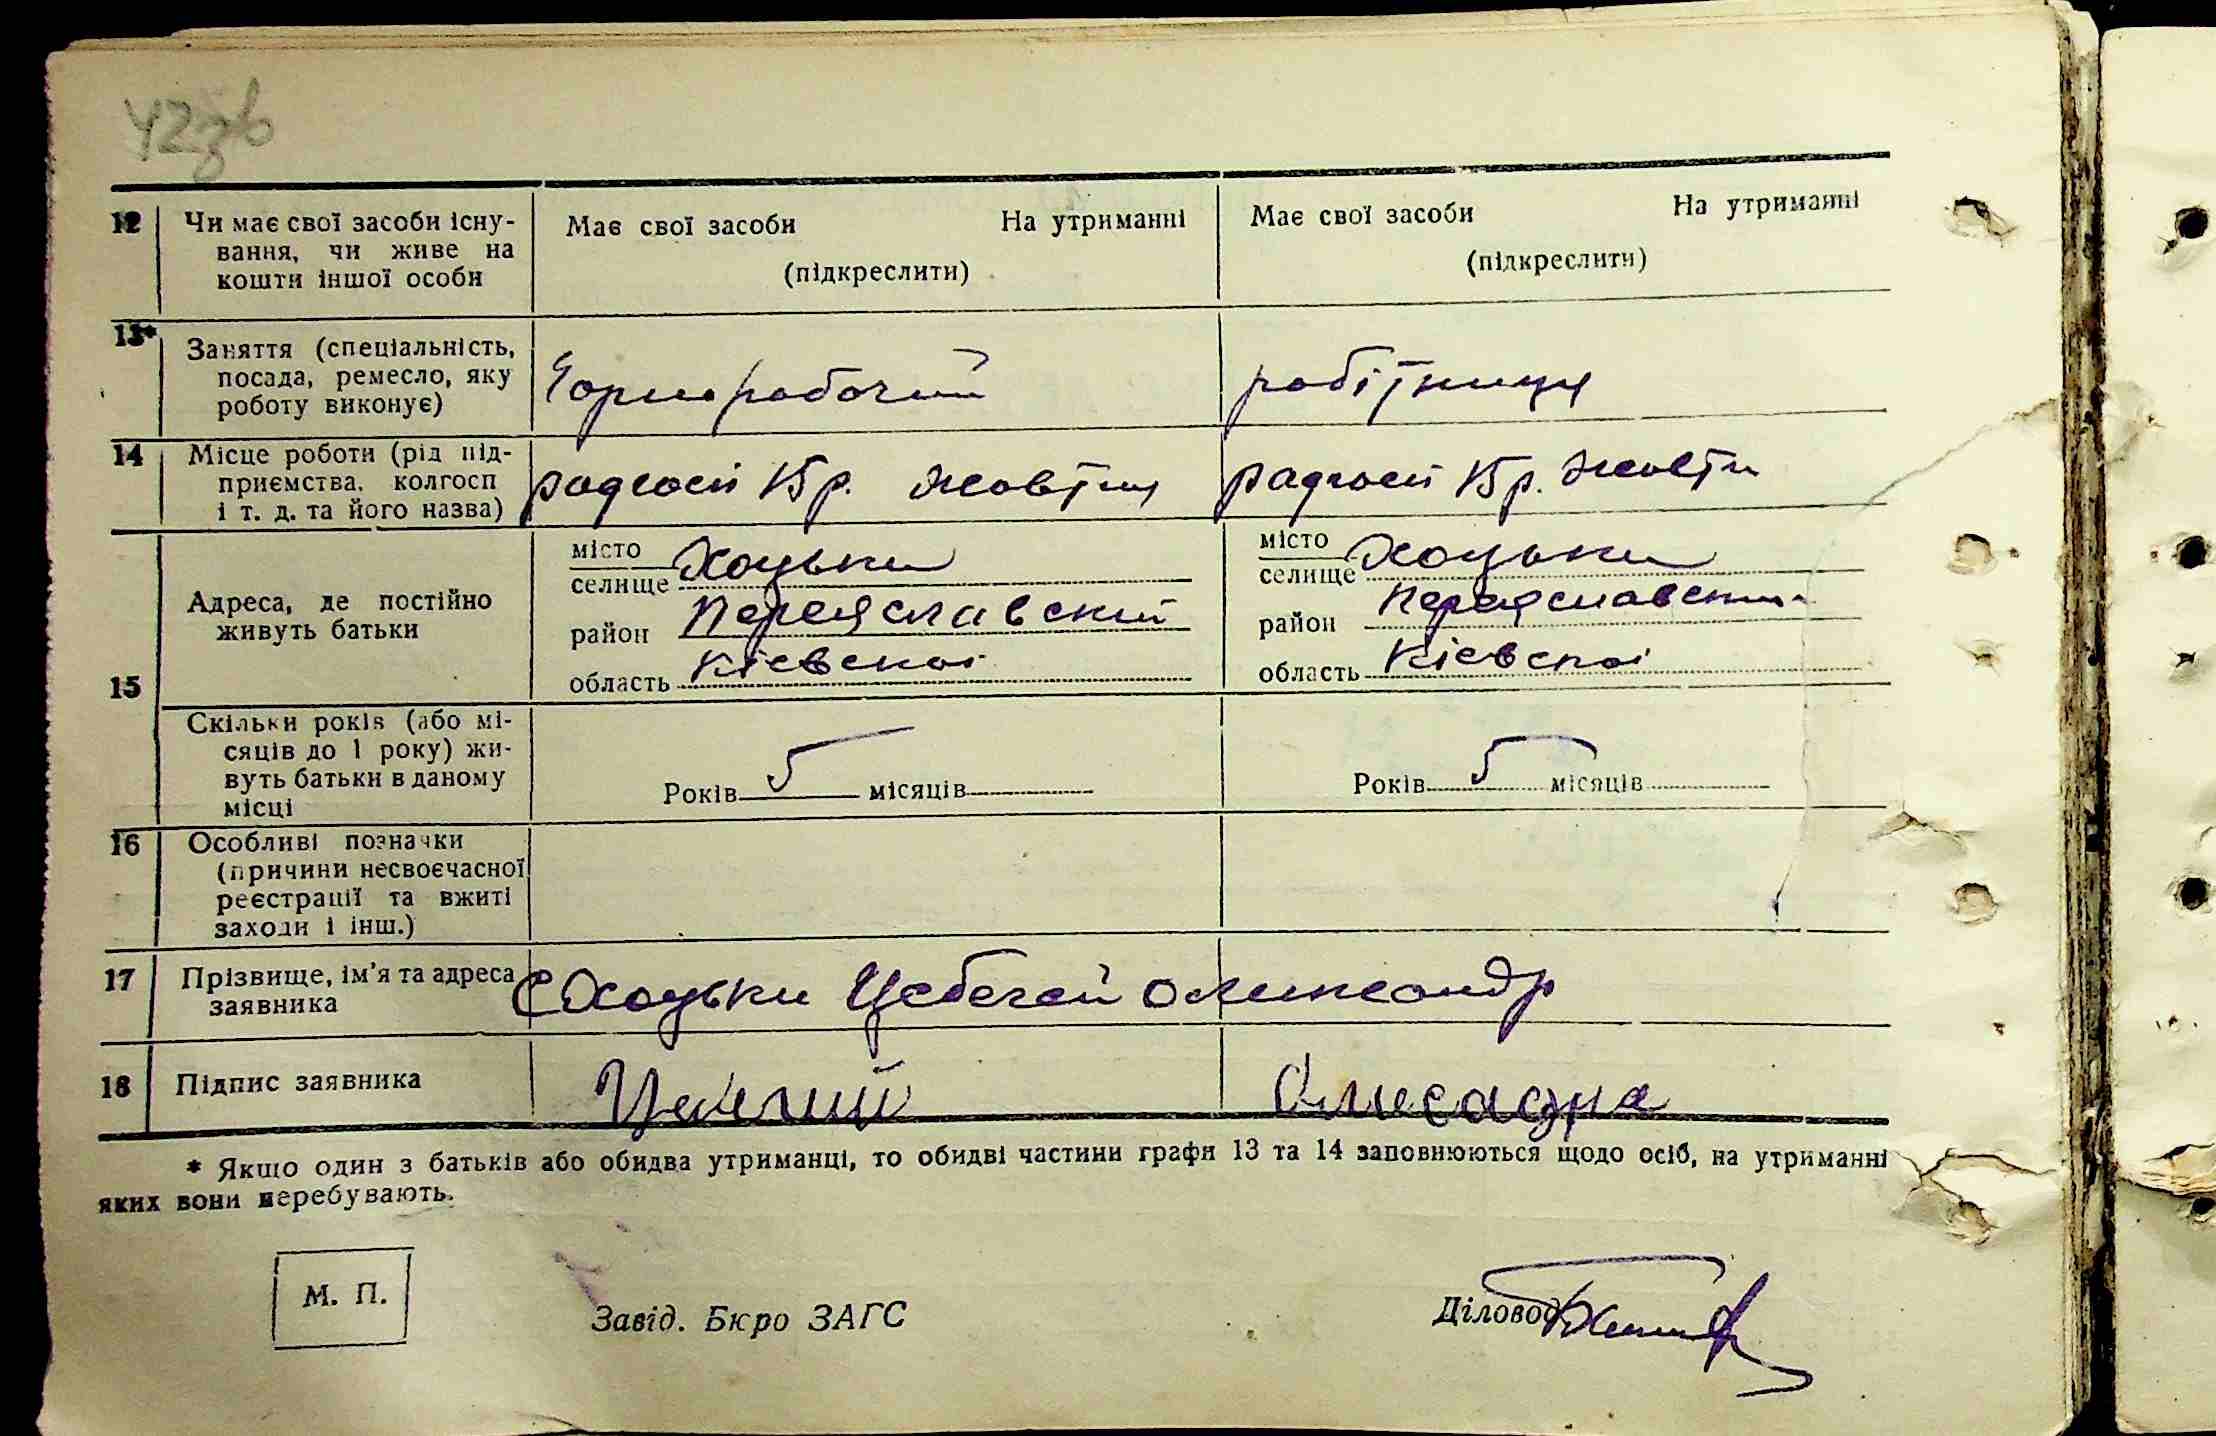 42зв
12 Чи має свої засоби існу-
вання, чи живе на
кошти іншої особи
Має свої засоби На утриманні
(підкреслити)
Має свої засоби На утриманні
(підкреслити)
13* Заняття (спеціальність,
посада, ремесло, яку
роботу виконує)
Чорнорабочий
робітниця
14 Місце роботи (рід під-
приємства, колгосп
і т. д. та його назва)
радгосп Кр. Жовтня
радгосп Кр. Жовтн
15 Адреса, де постійно
живуть батьки
місто
селище Хоцьки
район Переяславский
область Кієвскої
місто
селище Хоцьки
район Переяславский
область Кієвскої
Скільки років (або мі-
сяців до 1 року) жи-
вуть батьки в даному
місці
Років 5 місяців
Років 5 місяців
16 Особливі позначки
(причини несвоєчасної
реєстрації та вжиті
заходи і інш.)
17 Прізвище, ім'я та адреса
заявника
с Хоцьки Олександр
18 Підпис заявника
* Якщо один з батьків або обидва утриманці, то обидві частини графи 13 та 14 заповнюються щодо осіб, на утриманні
яких вони перебувають.
М. П.
Завід. Бюро ЗАГС
Діловод